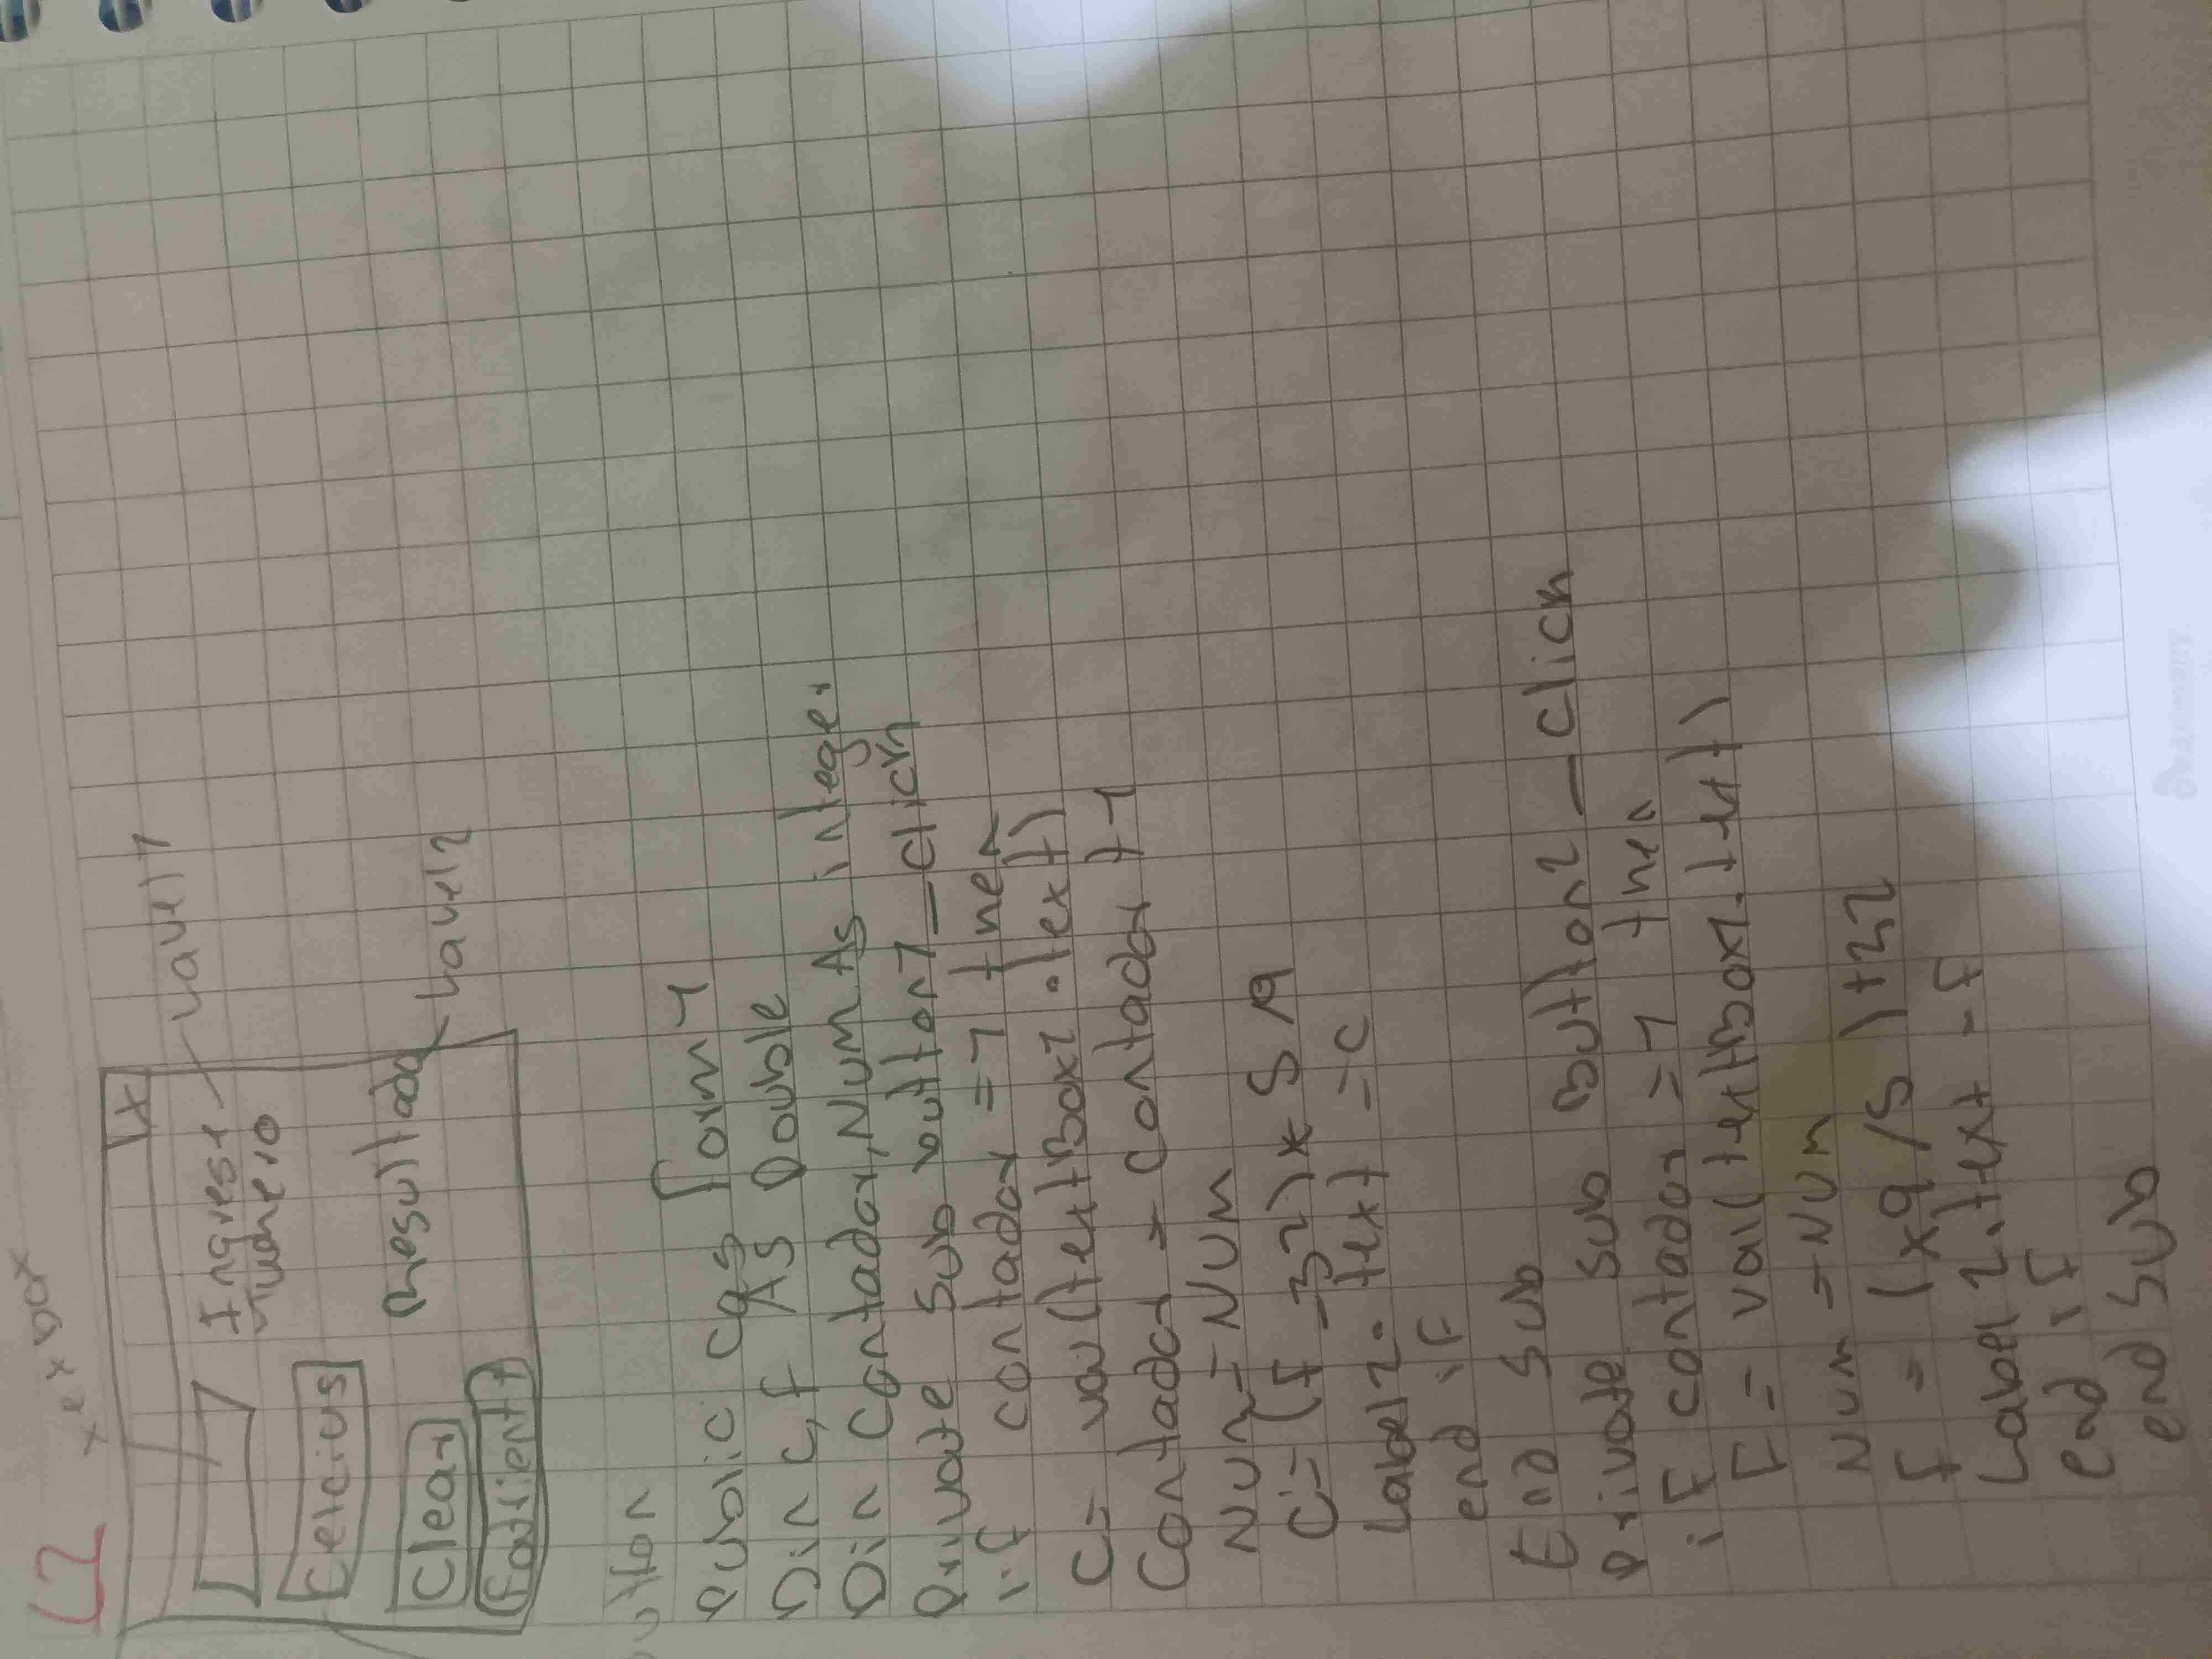 L2
textbox
X
Ingrese
numero
label1
Celcius
Resultado
label2
Clear
Farlient
button
public cas form 1
Din c, f AS Double
Din contador, Num As integer
Private Sub button1_click
if contador = 1 then
C= val(textBox1.text)
Contador = contador +1
Num = Num
C= (f -32) * 5/9
Label2.text =c
end if
End Sub
Private Sub Button2_click
if contador = 1 then
F = val(textBox1.text)
Num = Num
f = (x9/5)+32
Label2.text = f
end if
end Sub